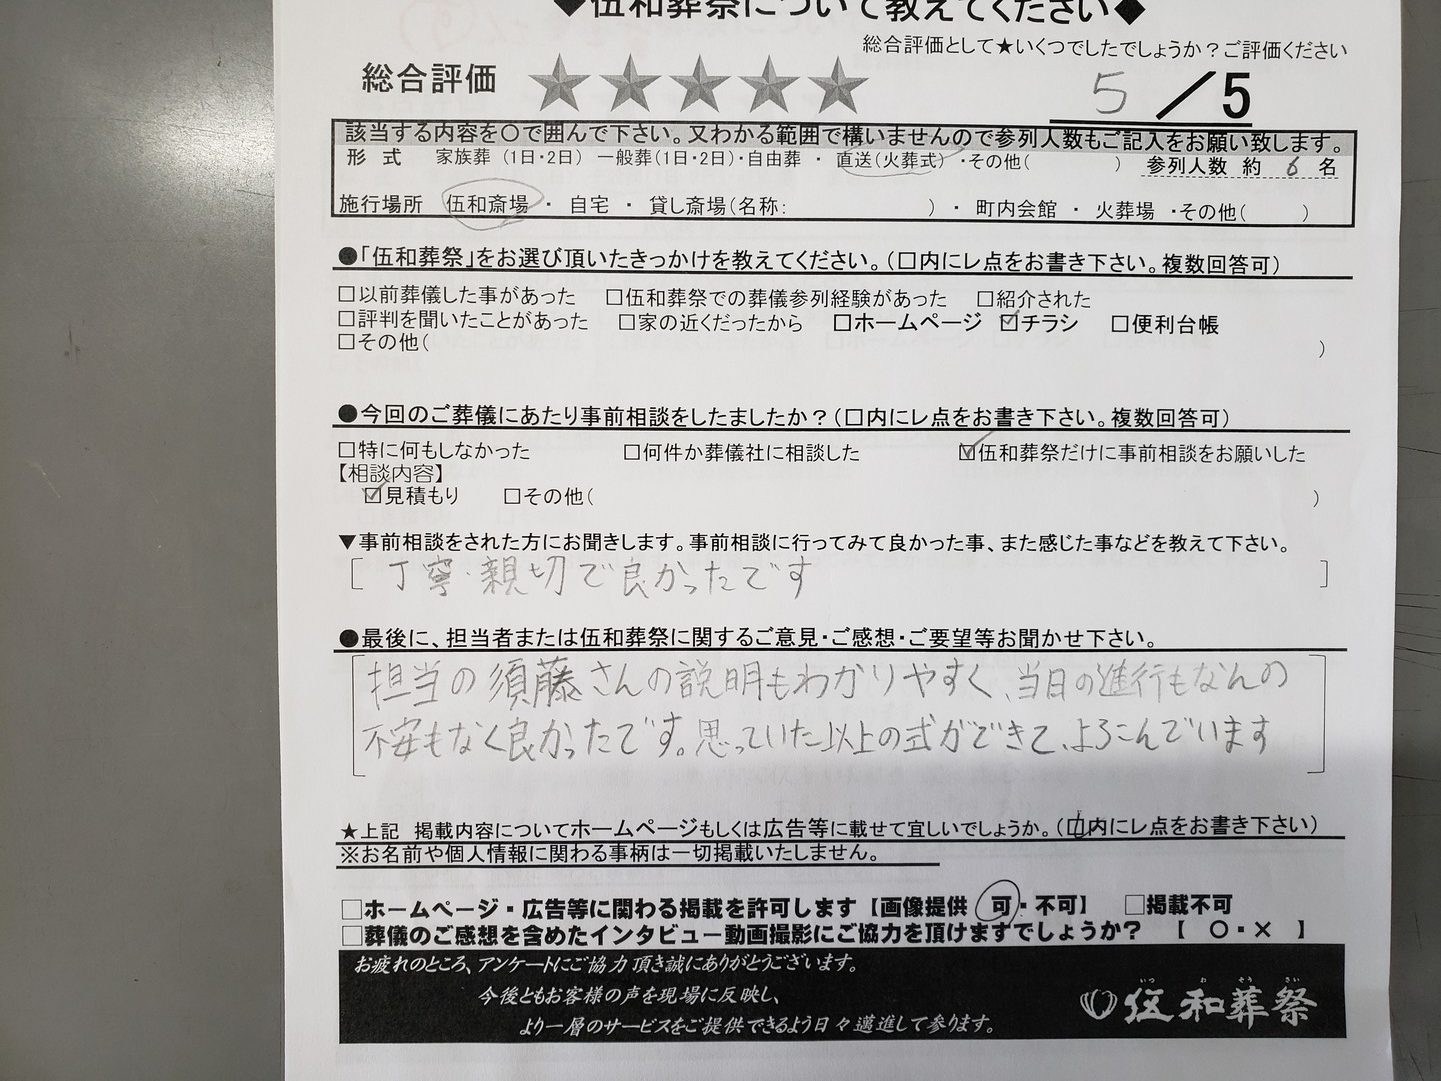 ◆伍和葬祭について教えてください◆
総合評価として★いくつでしたでしょうか？ご評価ください
総合評価 ★★★★★ 5／5
該当する内容を○で囲んで下さい。又わかる範囲で構いませんので参列人数もご記入をお願い致します。
形 式 家族葬（1日・2日） 一般葬（1日・2日）・自由葬 ・ 直送（火葬式）・その他（ ） 参列人数 約 6 名
施行場所 伍和斎場 ・ 自宅 ・ 貸し斎場（名称： ） ・ 町内会館 ・ 火葬場 ・その他（ ）
●「伍和葬祭」をお選び頂いたきっかけを教えてください。（□内にレ点をお書き下さい。複数回答可）
□以前葬儀した事があった □伍和葬祭での葬儀参列経験があった □紹介された
□評判を聞いたことがあった □家の近くだったから □ホームページ ☑チラシ □便利台帳
□その他（ ）
●今回のご葬儀にあたり事前相談をしたましたか？（□内にレ点をお書き下さい。複数回答可）
□特に何もしなかった □何件か葬儀社に相談した ☑伍和葬祭だけに事前相談をお願いした
【相談内容】
☑見積もり □その他（ ）
▼事前相談をされた方にお聞きします。事前相談に行ってみて良かった事、また感じた事などを教えて下さい。
[ 丁寧・親切で良かったです ]
●最後に、担当者または伍和葬祭に関するご意見・ご感想・ご要望等お聞かせ下さい。
担当の須藤さんの説明もわかりやすく、当日の進行もなんの
不安もなく良かったです。思っていた以上の式ができて、よろこんでいます
★上記 掲載内容についてホームページもしくは広告等に載せて宜しいでしょうか。（☑内にレ点をお書き下さい）
※お名前や個人情報に関わる事柄は一切掲載いたしません。
□ホームページ・広告等に関わる掲載を許可します【画像提供 可・不可】 □掲載不可
□葬儀のご感想を含めたインタビュー動画撮影にご協力を頂けますでしょうか？ 【 ○・× 】
お疲れのところ、アンケートにご協力頂き誠にありがとうございます。
今後ともお客様の声を現場に反映し、
より一層のサービスをご提供できるよう日々邁進して参ります。
いつ わ そう さい
伍和葬祭